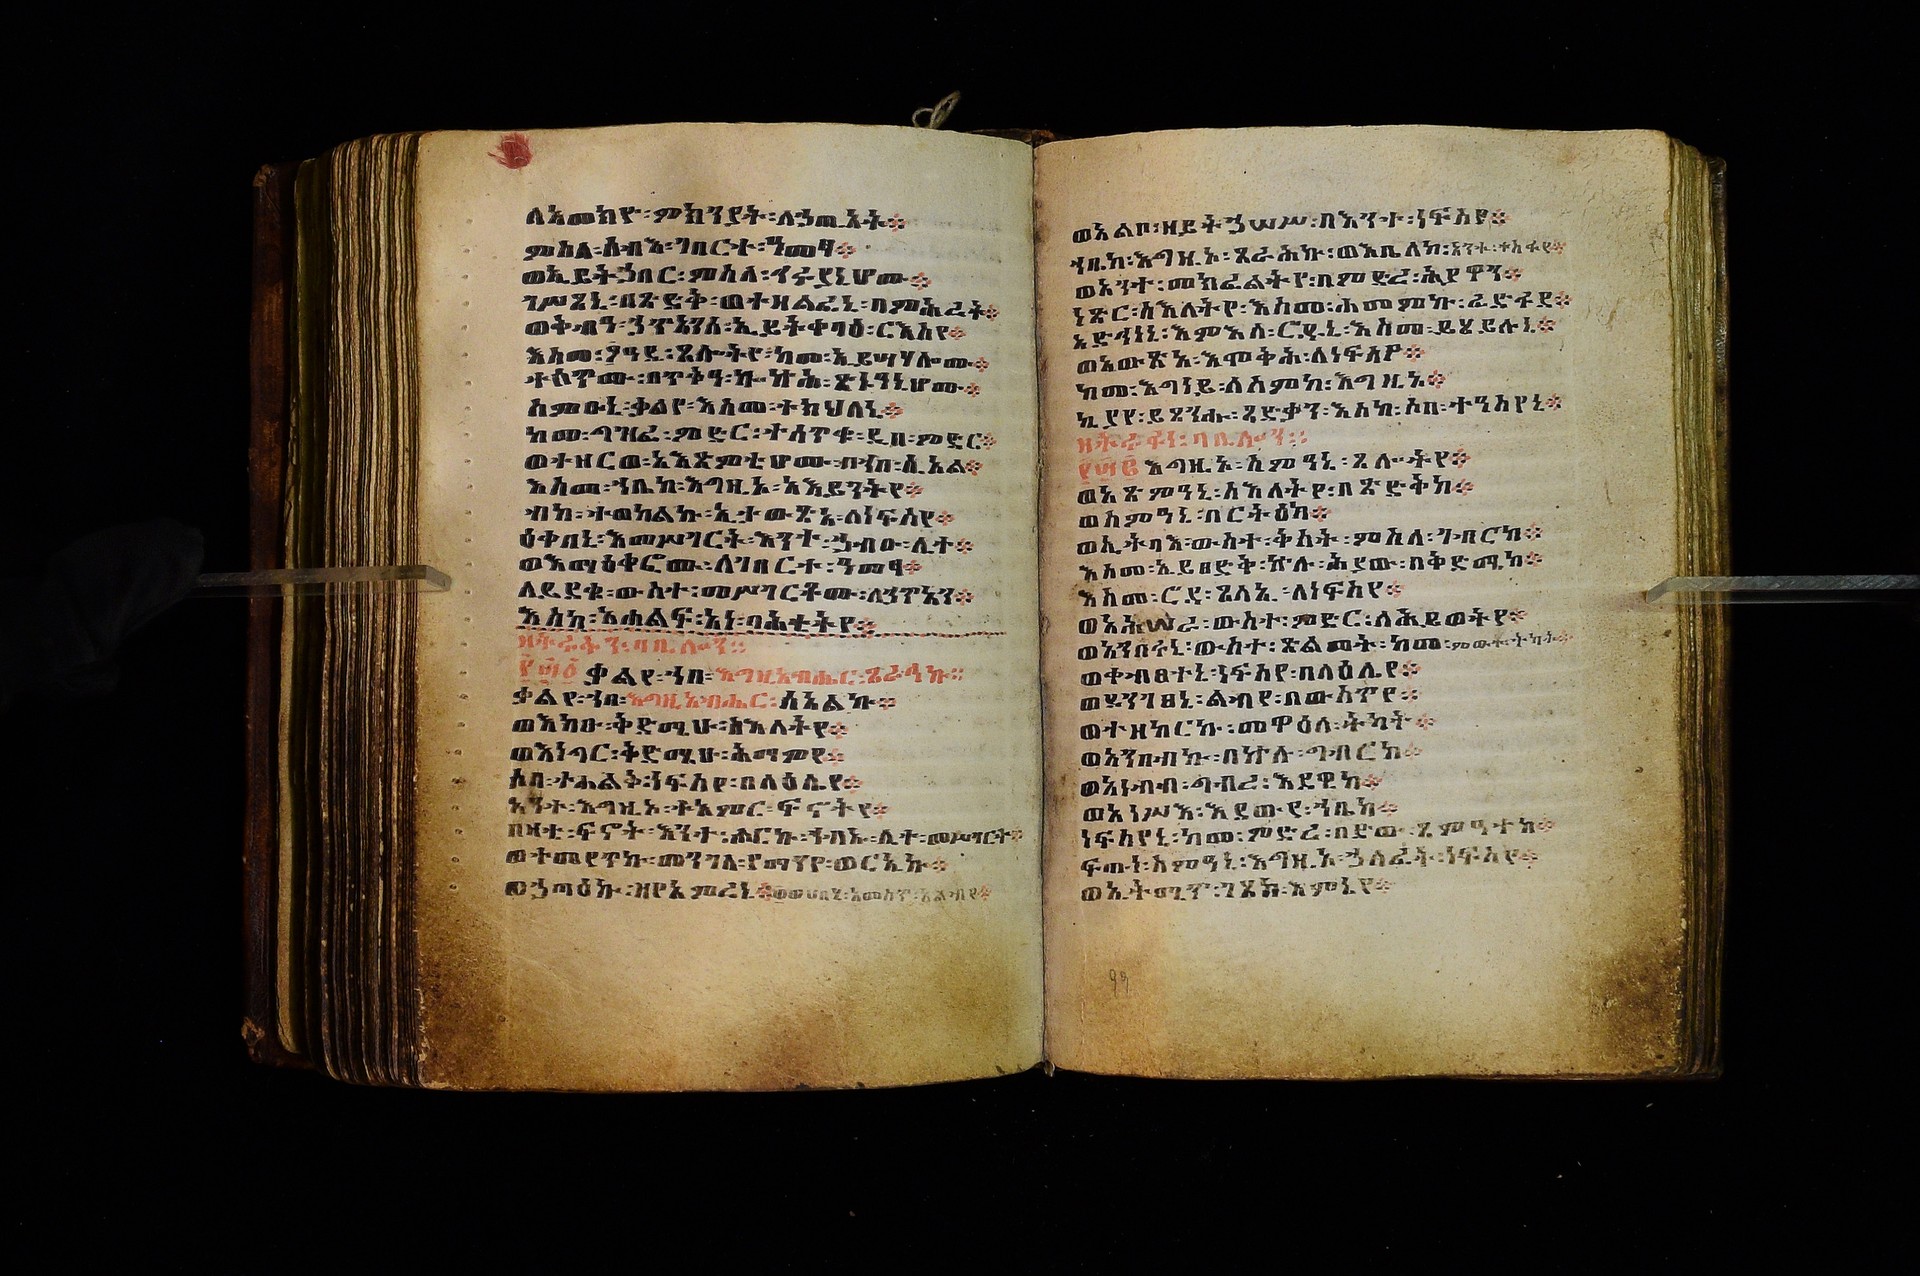 ለአመክዮ፡ምክንያት፡ለኃጢአት፨
ምስለ፡ሰብእ፡ገበርተ፡ዓመፃ፨
ወኢይትኃበር፡ምስለ፡ኅሩያኒሆሙ፨
ገሥጸኒ፡በጽድቅ፡ወተዘልፈኒ፡በምሕረት፨
ወቅብዓ፡ኃጥአንሰ፡ኢይትቀባዕ፡ርእስየ፨
እስመ፡ዓዲ፡ጸሎትየ፡ከመ፡ኢይሣሃሎሙ፨
ተሰጥሙ፡በጥቃ፡ኰኵሕ፡ጽኑዓኒሆሙ፨
ስምዑኒ፡ቃልየ፡እስመ፡ተክህለኒ፨
ከመ፡ግዝፈ፡ምድር፡ተሰጥቁ፡ዲበ፡ምድር፨
ወተዘርወ፡አእጽምቲሆሙ፡በኀበ፡ሲኦል፨
እስመ፡ኀቤከ፡እግዚኦ፡አእይንትየ፨
ብከ፡ተወከልኩ፡ኢታውጽኣ፡ለነፍስየ፨
ዕቀበኒ፡እመሥገርት፡እንተ፡ኃብኡ፡ሊተ፨
ወእማዕቅፎሙ፡ለገበርተ፡ዓመፃ፨
ለይደቁ፡ውስተ፡መሥገርቶሙ፡ለኃጥአን፨
እስከ፡አሐልፍ፡አነ፡ባሕቲትየ፨
ዘትራፋን፡ባቢሎን፨
፻፵፩ ቃልየ፡ኀበ፡እግዚአብሔር፡ጸራኅኩ፨
ቃልየ፡ኀበ፡እግዚአብሔር፡ሰአልኩ፨
ወእክዑ፡ቅድሜሁ፡ስእለትየ፨
ወእነግር፡ቅድሜሁ፡ሕማምየ፨
ሶበ፡ተሐልቅ፡ነፍስየ፡በላዕሌየ፨
አንተ፡እግዚኦ፡ተአምር፡ፍኖትየ፨
በዛቲ፡ፍኖት፡እንተ፡ሖርኩ፡ኀብኡ፡ሊተ፡መሥገርተ፨
ወተመየጥኩ፡መንገለ፡የማንየ፡ወርኢኩ፨
ወኃጣዕኩ፡ዘየአምረኒ፨
ወአልቦ፡ዘይትኃሠሦ፡በእንተ፡ነፍስየ፨
ኀቤከ፡እግዚኦ፡ጸራሕኩ፡ወእቤለከ፡አንተ፡ተስፋየ፨
ወአንተ፡መክፈልትየ፡በምድረ፡ሕያዋን፨
ነጽር፡ስእለትየ፡እስመ፡ሐመምኩ፡ፈድፋደ፨
አድኅነኒ፡እምእለ፡ሮዱኒ፡እስመ፡ይሄይሉኒ፨
ወአውጽኣ፡እሞቅሕ፡ለነፍስየ፨
ከመ፡እግነይ፡ለስምከ፡እግዚኦ፨
ኪያየ፡ይጸንሑ፡ጻድቃን፡እስከ፡ሶበ፡ተዓስየኒ፨
ዘትራፋን፡ባቢሎን፨
፻፵፪ እግዚኦ፡ስምዓኒ፡ጸሎትየ፨
ወአጽምዓኒ፡ስእለትየ፡በጽድቅከ፨
ወስምዓኒ፡በርትዕከ፨
ወኢትባእ፡ውስተ፡ቅስት፡ምስለ፡ገብርከ፨
እስመ፡ኢይፀድቅ፡ኵሉ፡ሕያው፡በቅድሜከ፨
እስመ፡ሮዳ፡ጸላኢ፡ለነፍስየ፨
ወአኅሠራ፡ውስተ፡ምድር፡ለሕይወትየ፨
ወአንበሩኒ፡ውስተ፡ጽልመት፡ከመ፡ምውተ፡ትካት፨
ወቀብፀተኒ፡ነፍስየ፡በላዕሌየ፨
ወደንገፀኒ፡ልብየ፡በውስጥየ፨
ወተዘከርኩ፡መዋዕለ፡ትካት፨
ወአንበብኩ፡በኵሉ፡ግብርከ፨
ወአነብብ፡ግብረ፡እደዊከ፨
ወአነሥእ፡እደውየ፡ኀቤከ፨
ነፍስየኒ፡ከመ፡ምድረ፡በድው፡ጸምዓተከ፨
ፍጡነ፡ስምዓኒ፡እግዚኦ፡ኃለፈት፡ነፍስየ፨
ወኢትሚጥ፡ገጸከ፡እምኔየ፨